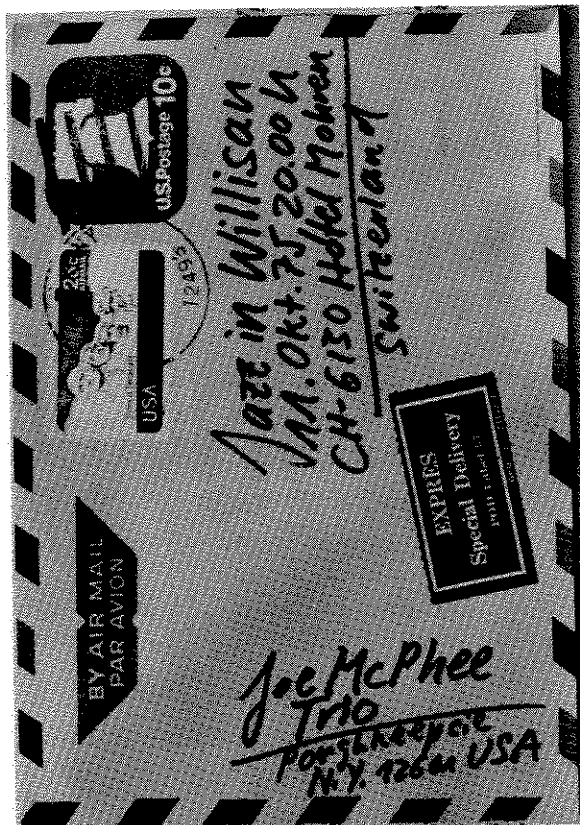 BY AIR MAIL
PAR AVION
USA
U.S.Postage 10c
12495
Jazz in Willisau
11. Okt. 75 20.00 h
CH-6130 Hotel Mohren
Switzerland
EXPRES
Special Delivery
Joe McPhee
Trio
Poughkeepsie
N.Y. USA